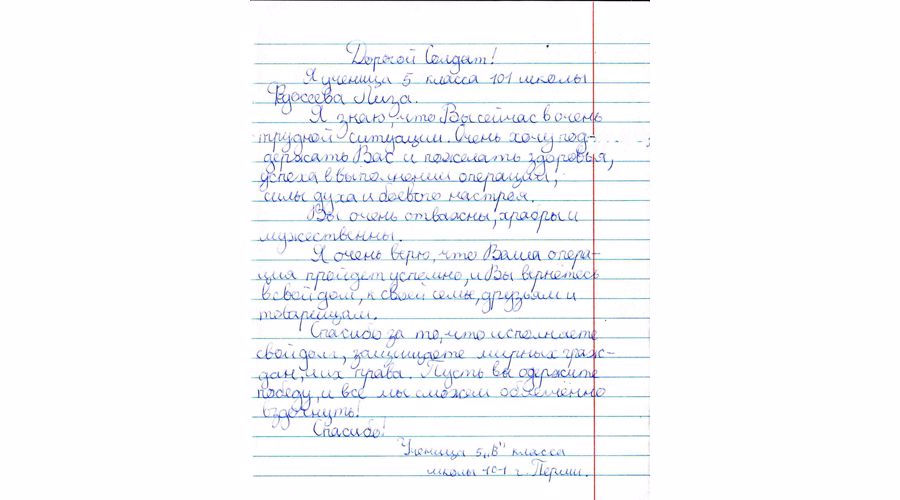 Дорогой Солдат!
Я ученица 5 класса 101 школы
Федосеева Лиза.
Я знаю, что Вы сейчас в очень
трудной ситуации. Очень хочу под-
держать Вас и пожелать здоровья,
успеха в выполнении операции,
силы духа и боевого настроя.
Вы очень отважны, храбры и
мужественны.
Я очень верю, что Ваша опера-
ция пройдет успешно, и Вы вернетесь
в свой дом, к своей семье, друзьям и
товарищам.
Спасибо за то, что исполняете
свой долг, защищаете мирных граж-
дан, и их права. Пусть вы одержите
победу, и все мы сможем облегчённо
вздохнуть!
Спасибо!
Ученица 5 „В" класса
школы 101 г. Перми.